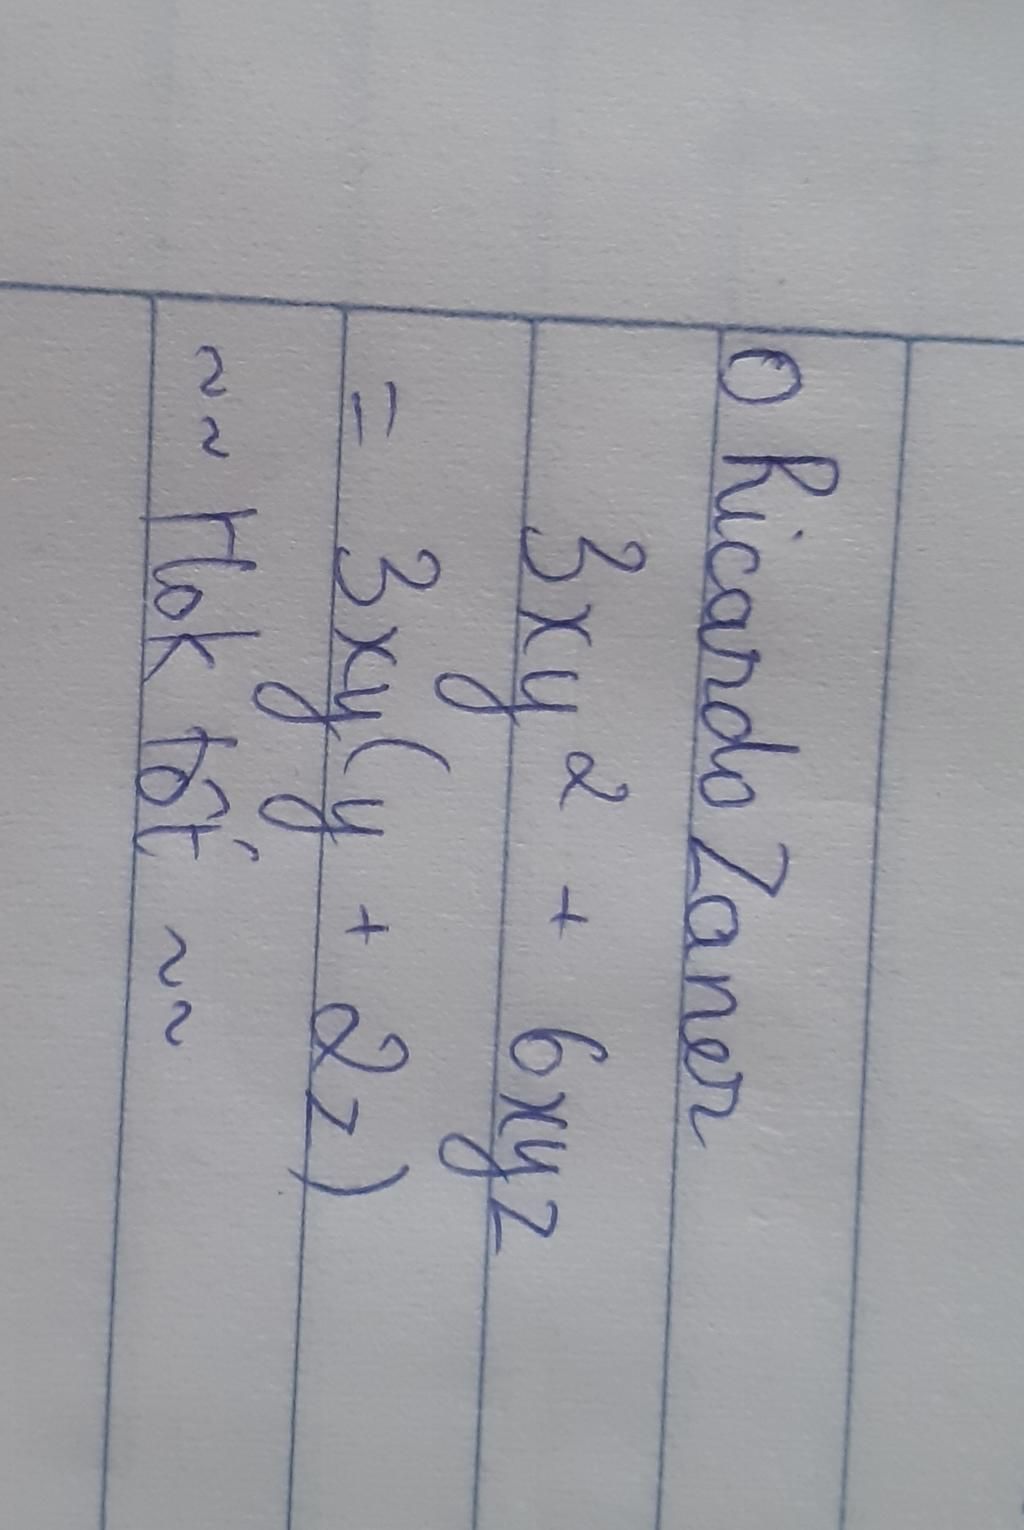 O Ricardo Zaner
3xy² + 6xyz
= 3xy(y + 2z)
~~ Hok tốt ~~